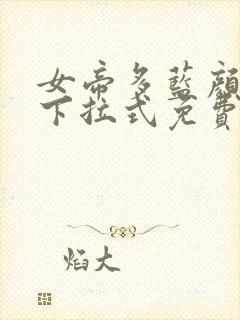 女帝多藍顏
下拉式免費
焰大